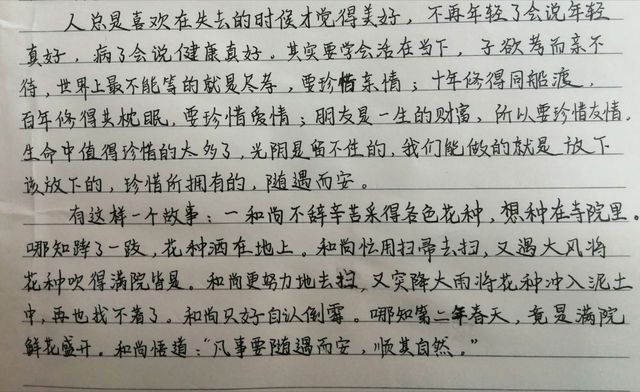 人总是喜欢在失去的时候才觉得美好，不再年轻了会说年轻
真好，病了会说健康真好。其实要学会活在当下，子欲养而亲不
待，世界上最不能等的就是尽孝，要珍惜亲情；十年修得同船渡，
百年修得共枕眠，要珍惜爱情；朋友是一生的财富，所以要珍惜友情。
生命中值得珍惜的太多了，光阴是留不住的，我们能做的就是放下
该放下的，珍惜所拥有的，随遇而安。
有这样一个故事：一和尚不辞辛苦采得各色花种，想种在寺院里。
哪知蹿了一跤，花种洒在地上。和尚忙用扫帚去扫，又遇大风将
花种吹得满院皆是。和尚更努力地去扫，又突降大雨将花种冲入泥土
中，再也找不着了。和尚只好自认倒霉。哪知第二年春天，竟是满院
鲜花盛开。和尚悟道：“凡事要随遇而安，顺其自然。”